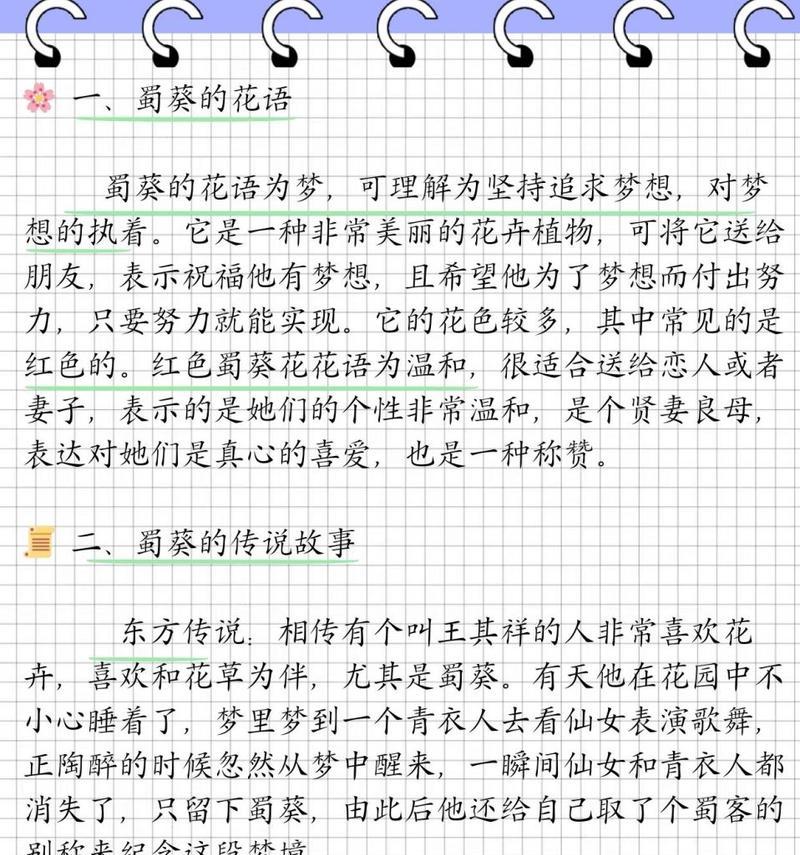 一、蜀葵的花语
蜀葵的花语为梦，可理解为坚持追求梦想，对梦
想的执着。它是一种非常美丽的花卉植物，可将它送给
朋友，表示祝福他有梦想，且希望他为了梦想而付出努
力，只要努力就能实现。它的花色较多，其中常见的是
红色的。红色蜀葵花花语为温和，很适合送给恋人或者
妻子，表示的是她们的个性非常温和，是个贤妻良母，
表达对她们是真心的喜爱，也是一种称赞。
二、蜀葵的传说故事
东方传说：相传有个叫王其祥的人非常喜欢花
卉，喜欢和花草为伴，尤其是蜀葵。有天他在花园中不
小心睡着了，梦里梦到一个青衣人去看仙女表演歌舞，
正陶醉的时候忽然从梦中醒来，一瞬间仙女和青衣人都
消失了，只留下蜀葵，由此后他还给自己取了个蜀客的
别称来纪念这段梦境